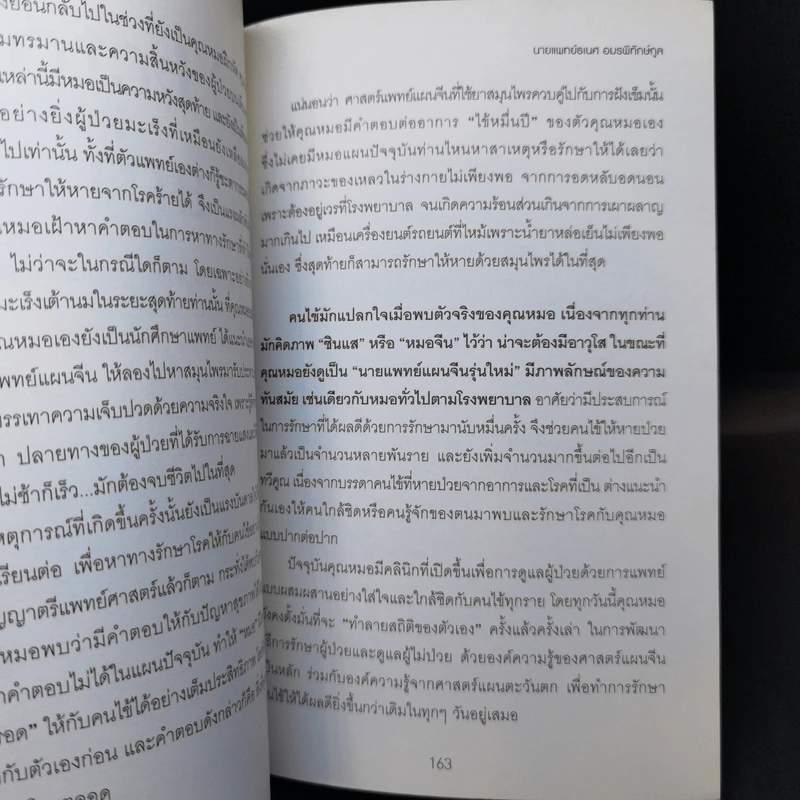 งย้อนกลับไปในช่วงที่ยังเป็นคุณหมอฝึกหัด
มทรมานและความสิ้นหวังของผู้ป่วย
เหล่านี้มีหมอเป็นความหวังสุดท้าย
อย่างยิ่งผู้ป่วยมะเร็งที่เหมือนยัง
ไปเท่านั้น ทั้งที่ตัวแพทย์เองต่างก็รู้
รักษาให้หายจากโรคร้ายได้ จึงเป็น
หมอเฝ้าหาคำตอบในการหาทางรักษา
ไม่ว่าจะในกรณีใดก็ตาม โดยเฉพาะ
มะเร็งเต้านมในระยะสุดท้ายท่านนั้น
คุณหมอเองยังเป็นนักศึกษาแพทย์
แพทย์แผนจีน ให้ลองไปหาสมุนไพรมา
บรรเทาความเจ็บปวดด้วยความจริงใจ
ปลายทางของผู้ป่วยที่ได้รับการฉายแสง
ไม่ช้าก็เร็ว...มักต้องจบชีวิตไปในที่สุด
หตุการณ์ที่เกิดขึ้นครั้งนั้นยังเป็นแรง
เรียนต่อ เพื่อหาทางรักษาโรคให้กับคนไข้
ญญาตรีแพทย์ศาสตร์แล้วก็ตาม
หมอพบว่ามีคำตอบให้กับปัญหาสุขภาพ
าคำตอบไม่ได้ในแผนปัจจุบัน ทำให้
รอด” ให้กับคนไข้ได้อย่างเต็มประสิทธิภาพ
กับตัวเองก่อน และคำตอบดังกล่าวก็คือ
นายแพทย์ธเนศ อมรพิทักษ์กูล
แน่นอนว่า ศาสตร์แพทย์แผนจีนที่ใช้ยาสมุนไพรควบคู่ไปกับการฝังเข็มนั้น
ช่วยให้คุณหมอมีคำตอบต่ออาการ “ไข้หมื่นปี” ของตัวคุณหมอเอง
ซึ่งไม่เคยมีหมอแผนปัจจุบันท่านไหนหาสาเหตุหรือรักษาให้ได้เลยว่า
เกิดจากภาวะของเหลวในร่างกายไม่เพียงพอ จากการอดหลับอดนอน
เพราะต้องอยู่เวรโรงพยาบาล จนเกิดความร้อนส่วนเกินจากการเผาผลาญ
มากเกินไป เหมือนเครื่องยนต์รถยนต์ที่ไหม้เพราะน้ำยาหล่อเย็นไม่เพียงพอ
นั่นเอง ซึ่งสุดท้ายก็สามารถรักษาให้หายด้วยสมุนไพรได้ในที่สุด
คนไข้มักแปลกใจเมื่อพบตัวจริงของคุณหมอ เนื่องจากทุกท่าน
มักคิดภาพ “ซินแส” หรือ “หมอจีน” ไว้ว่า น่าจะต้องมีอาวุโส ในขณะที่
คุณหมอยังดูเป็น “นายแพทย์แผนจีนรุ่นใหม่” มีภาพลักษณ์ของความ
ทันสมัย เช่นเดียวกับหมอทั่วไปตามโรงพยาบาล อาศัยว่ามีประสบการณ์
ในการรักษาที่ได้ผลดีด้วยการรักษามานับหมื่นครั้ง จึงช่วยคนไข้ให้หายป่วย
มาแล้วเป็นจำนวนหลายพันราย และยังเพิ่มจำนวนมากขึ้นต่อไปอีกเป็น
ทวีคูณ เนื่องจากบรรดาคนไข้ที่หายป่วยจากอาการและโรคที่เป็น ต่างแนะนำ
กันเองให้คนใกล้ชิดหรือคนรู้จักของตนมาพบและรักษาโรคกับคุณหมอ
แบบปากต่อปาก
ปัจจุบันคุณหมอมีคลินิกที่เปิดขึ้นเพื่อการดูแลผู้ป่วยด้วยการแพทย์
แบบผสมผสานอย่างใส่ใจและใกล้ชิดกับคนไข้ทุกราย โดยทุกวันนี้คุณหมอ
ังคงตั้งมั่นที่จะ “ทำลายสถิติของตัวเอง” ครั้งแล้วครั้งเล่า ในการพัฒนา
ิธีการรักษาผู้ป่วยและดูแลผู้ไม่ป่วย ด้วยองค์ความรู้ของศาสตร์แผนจีน
ป็นหลัก ร่วมกับองค์ความรู้จากศาสตร์แผนตะวันตก เพื่อทำการรักษา
นไข้ให้ได้ผลดียิ่งขึ้นกว่าเดิมในทุกๆ วันอยู่เสมอ
163